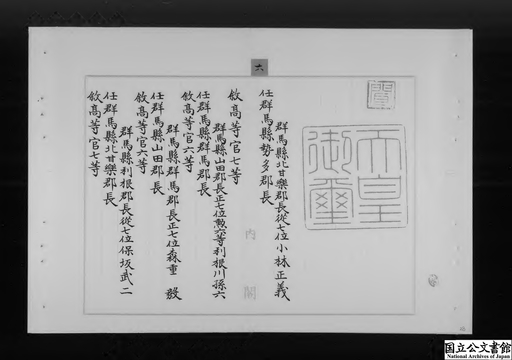 六
覽
天皇
御璽
群馬縣北甘樂郡長從七位小林正義
任群馬縣勢多郡長
敘高等官七等
群馬縣山田郡長正七位勲六等利根川孫六
任群馬縣群馬郡長
敘高等官六等
群馬縣群馬郡長正七位森重毅
任群馬縣山田郡長
敘高等官六等
群馬縣利根郡長從七位保坂武二
任群馬縣北甘樂郡長
敘高等官七等
内閣
国立公文書館
National Archives of Japan